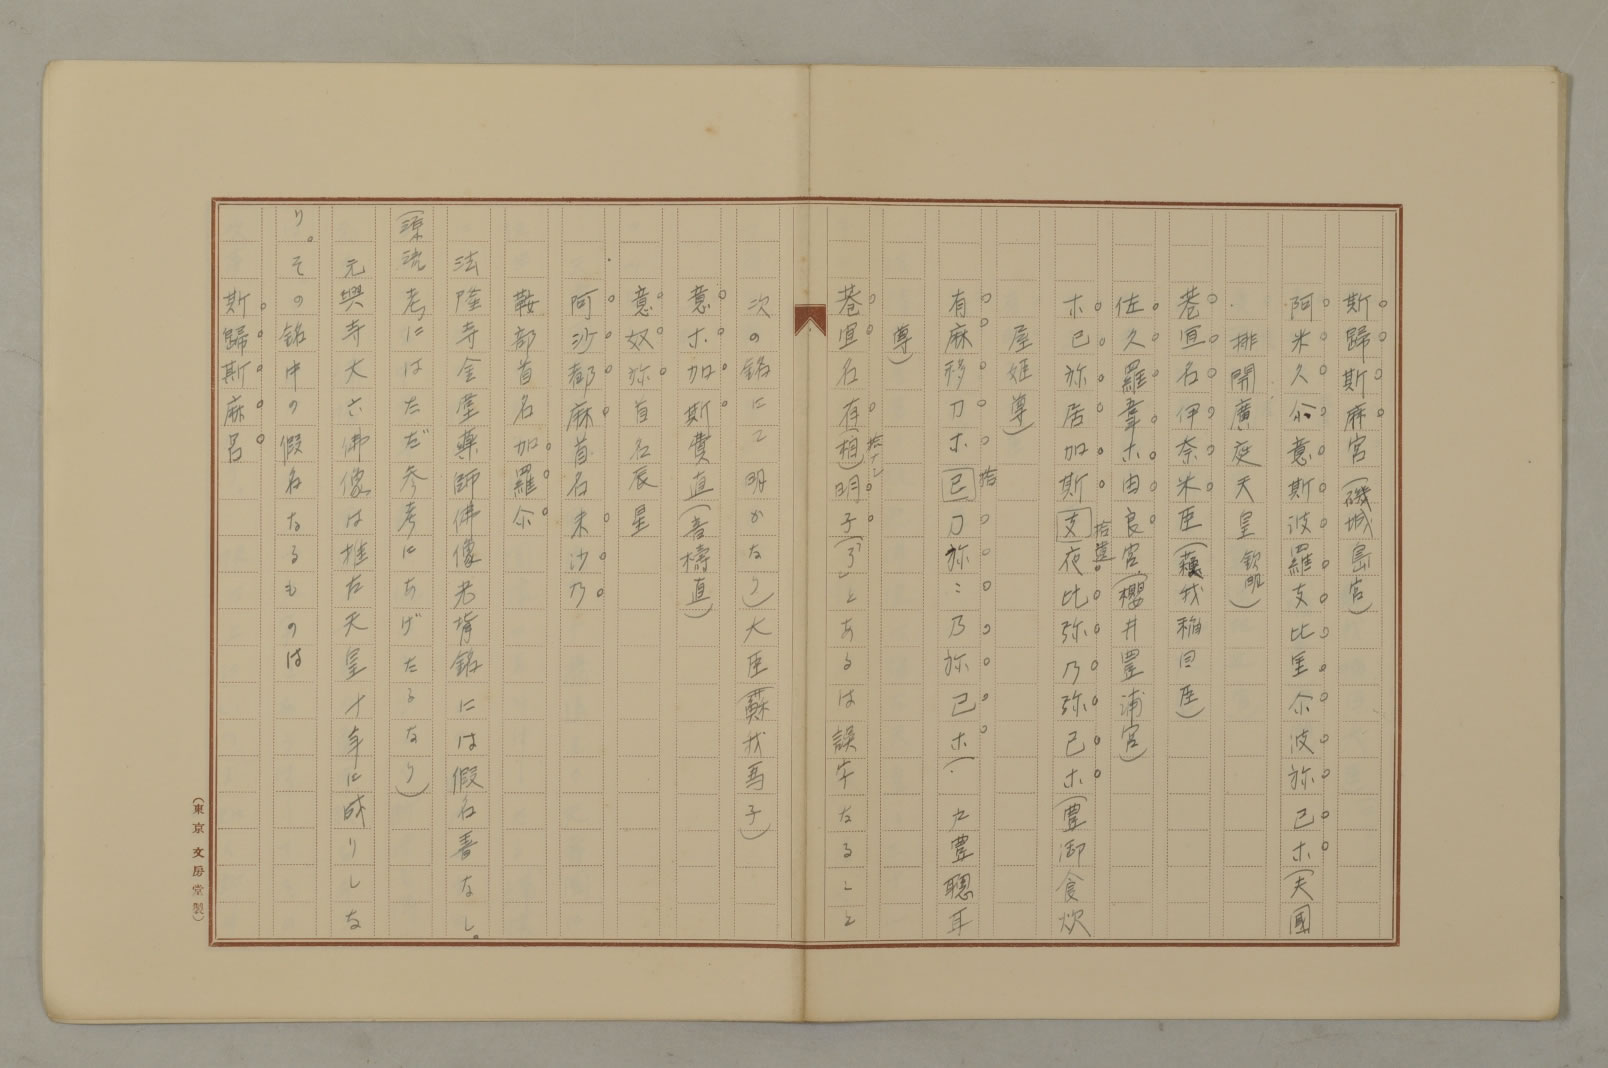 斯歸斯麻宮(磯城島宮)
阿米久尒意斯波羅支比里尒波弥己ホ(天國
排開廣庭天皇 欽明)
巷宜名伊奈米臣(蘇我稲目臣)
佐久羅韋ホ由良宮(櫻井豊浦宮)
ホ已弥居加斯支夜比弥乃弥己ホ(豊御食炊
拾遺
屋姫尊)
有麻移刀ホ已刀弥ミ乃弥已ホ(厩豊聰耳
拾
尊)
巷宜名有(相)明子(「子」とあるは誤字なること
拾ナシ
次の銘にて明かなり)大臣(蘇我馬子)
意ホ加斯費直(書檮直)
意奴弥首名辰星
阿沙都麻首名未沙乃
鞍部首名加羅尒
法隆寺金堂薬師佛像光背銘には假名書なし。
(源流考にはただ参考にあげたるなり)
元興寺丈六佛像は推古天皇十年に成りしな
り。その銘中の假名なるものは
斯歸斯麻呂
(東京 文房堂製)